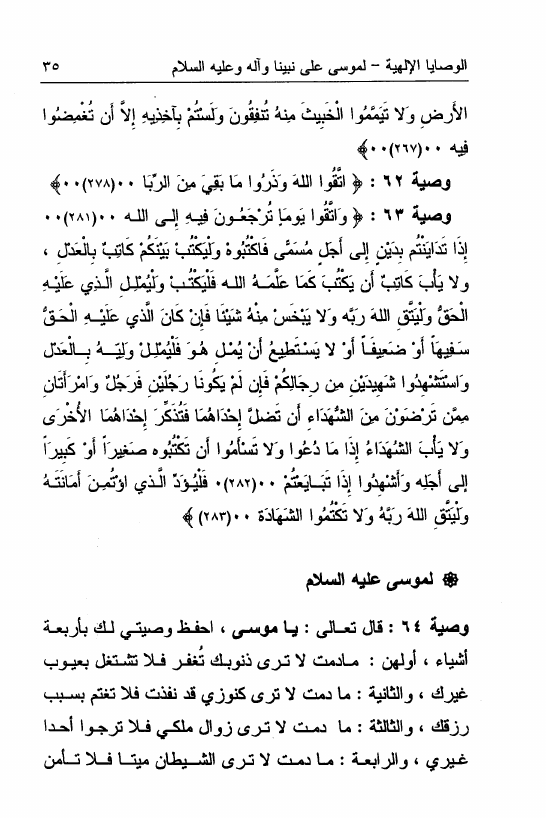 الوصايا الإلهية – لموسى على نبينا وآله وعليه السلام ٣٥
الأَرضِ وَلا تَيَمَّمُوا الْخَبِيثَ مِنهُ تُنفِقُونَ وَلَستُمْ بِآخِذِيهِ إِلاَّ أَن تُغْمِضُوا
فِيه ٠٠(٢٦٧)٠٠﴾
وصية ٦٢ : ﴿ اتَّقُوا اللهَ وَذَرُوا مَا بَقِيَ مِنَ الرِّبَا ٠٠(٢٧٨)٠٠﴾
وصية ٦٣ : ﴿ وَاتَّقُوا يَومَاً تُرْجَعُونَ فِيهِ إِلى الله ٠٠(٢٨١)٠٠
إِذَا تَدَايَنْتُم بِدَيْنٍ إِلى أَجَلٍ مُسَمَّى فَاكْتُبُوهُ وَلْيَكْتُبْ بَيْنَكُمْ كَاتِبٌ بِالْعَدْلِ ،
ولا يَأْبَ كَاتِبٌ أَن يَكْتُبَ كَمَا عَلَّمَهُ الله فَلْيَكْتُبْ وَلْيُمْلِلِ الَّذِي عَلَيْهِ
الْحَقُّ وَلْيَتَّقِ اللهَ رَبَّه وَلا يَبْخَسْ مِنْهُ شَيْئَاً فَإِنْ كَانَ الَّذي عَلَيْهِ الْحَقُّ
سَفِيهَاً أَوْ ضَعِيفَاً أَوْ لا يَسْتَطِيعُ أَنْ يُمْلِ هُوَ فَلْيُمْلِلْ وَلِيّهُ بِالْعَدْل
وَاسْتَشْهِدُوا شَهِيدَيْنِ مِن رِجالِكُمْ فَإِن لَمْ يَكُونَا رَجُلَيْنِ فَرَجُلٌ وَامْرَأَتَانِ
مِمَّن تَرْضَوْنَ مِنَ الشُّهَدَاءِ أَن تَضلَّ إِحْدَاهُمَا فَتُذَكِّرَ إِحْدَاهُمَا الأُخْرَى
وَلا يَأْبَ الشُهَدَاءُ إِذَا مَا دُعُوا وَلا تَسْأَمُوا أَن تَكْتُبُوه صَغِيرَاً أَوْ كَبِيرَاً
إلى أَجَلِه وَأَشْهِدُوا إِذَا تَبَايَعتُمْ ٠٠(٢٨٢)٠ فَلْيُؤَدِّ الَّذي اؤتُمِنَ أَمَانَتَهُ
وَلْيَتَّقِ اللهَ رَبَّهُ وَلا تَكْتُمُوا الشَهَادَة ٠٠(٢٨٣)﴾
لموسى عليه السلام
وصية ٦٤ : قال تعالى : يا موسى ، احفظ وصيتي لك بأربعة
أشياء ، أولهن : مادمت لا ترى ذنوبك تُغفر فلا تشتغل بعيوب
غيرك ، والثانية : ما دمت لا ترى كنوزي قد نفذت فلا تغتم بسبب
رزقك ، والثالثة : ما دمت لا ترى زوال ملكي فلا ترجوا أحدا
غيري ، والرابعة : ما دمت لا ترى الشيطان ميتا فلا تأمن